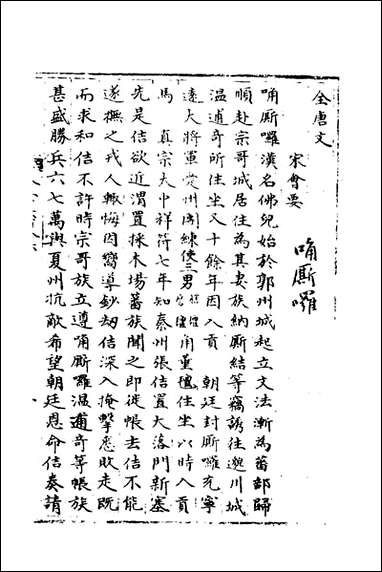 全唐文
宋會要
唃廝囉
唃廝囉漢名佛兒始於鄯州城起立文法漸為蕃部歸
順赴宗哥城居住為其妻族納廝結等竊誘往邈川城
溫逋奇所住坐又十餘年因入貢 朝廷封廝囉充寧
遠大將軍愛州團練使三男 角董氊住坐以時入貢
馬 真宗大中祥符七年知秦州張佶置大落門新寨
先是佶欲近渭置採木場蕃族聞之即徙帳去佶不能
遂撫之戎人輒悔因嚮導鈔劫佶深入掩擊悉敗走既
而求和佶不許時宗哥族立遵唃廝囉溫逋奇等帳族
甚盛勝兵六七萬與夏州抗敵希望朝廷恩命佶奏請